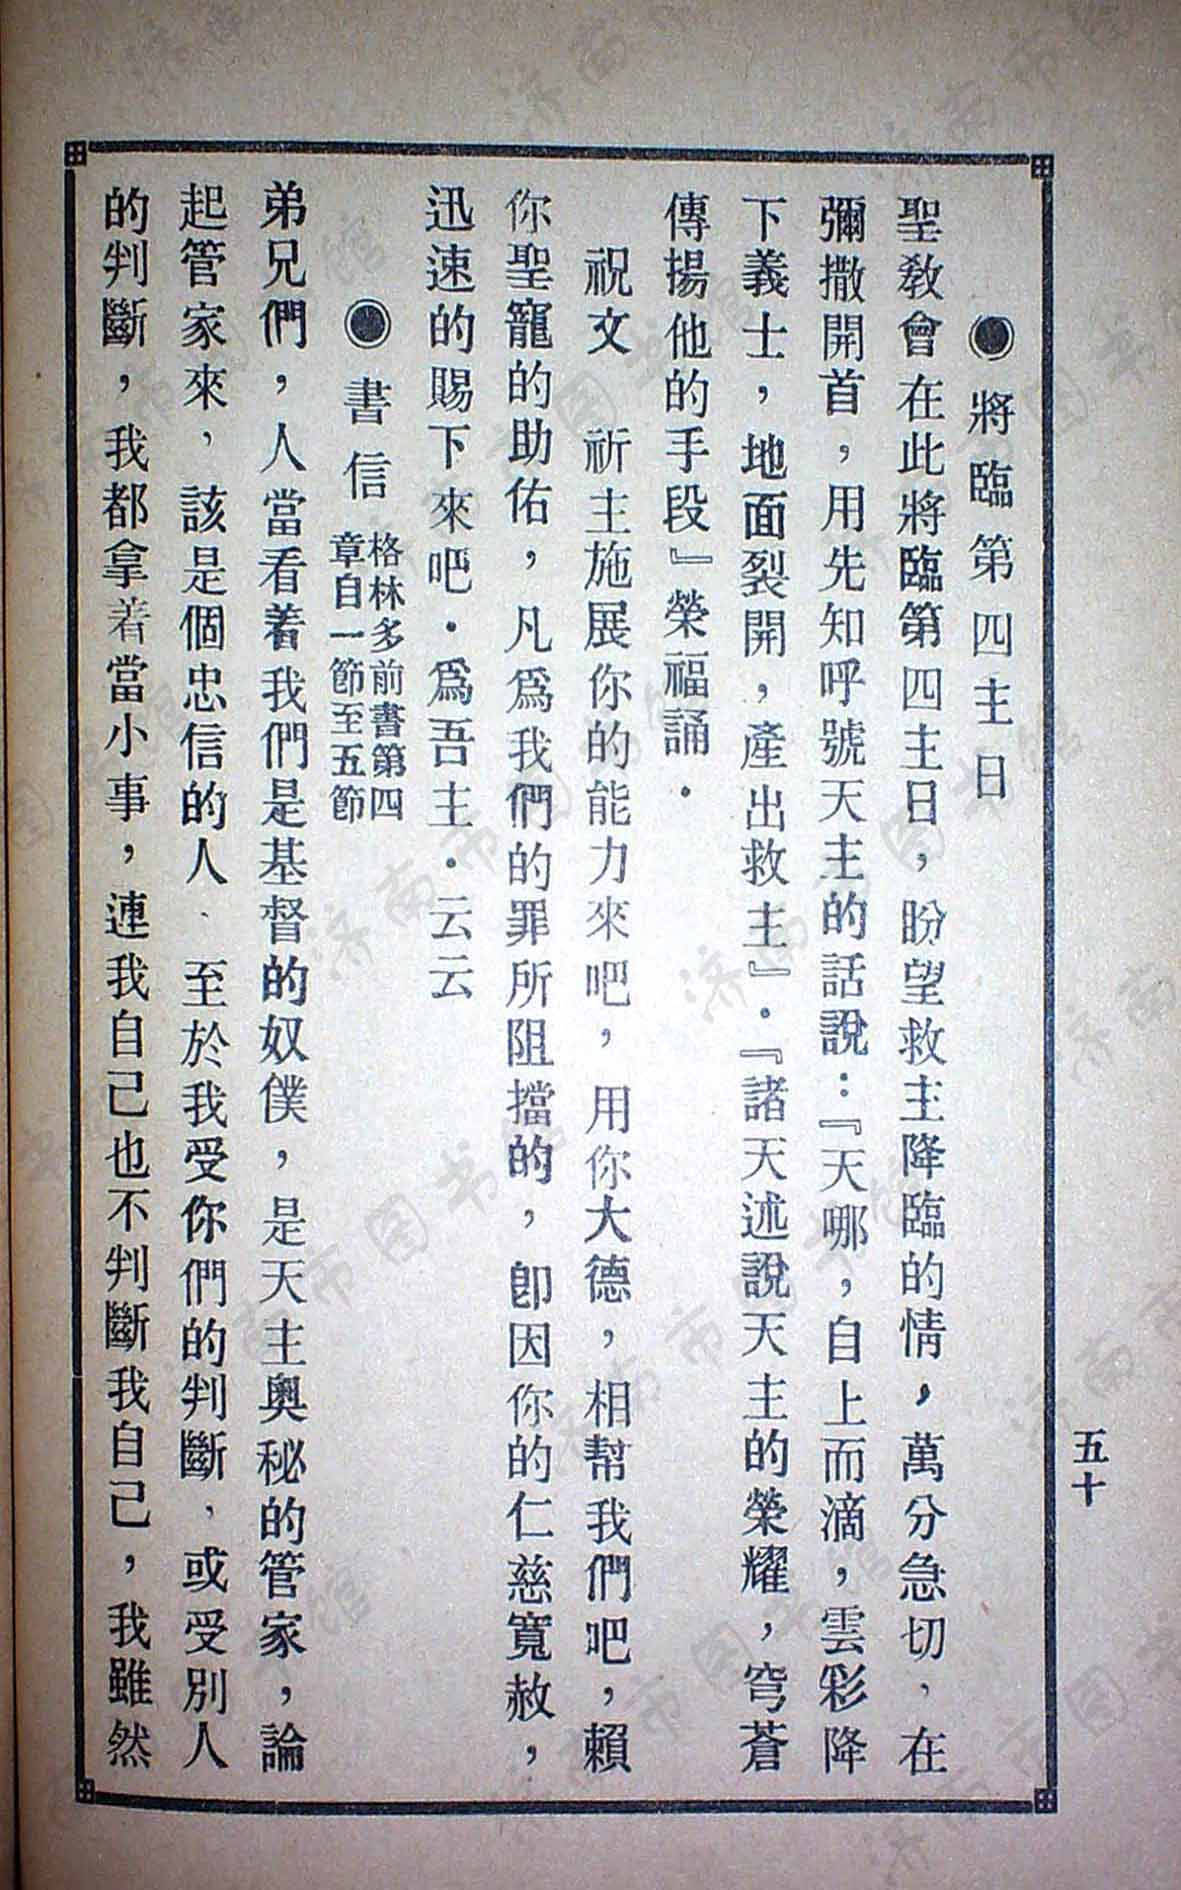 五十
◉將臨第四主日
聖教會在此將臨第四主日，盼望救主降臨的情，萬分急切，在
彌撒開首，用先知呼號天主的話說：『天哪，自上而滴，雲彩降
下義士，地面裂開，產出救主』．『諸天述說天主的榮耀，穹蒼
傳揚他的手段』榮福誦．
祝文　祈主施展你的能力來吧，用你大德，相幫我們吧，賴
你聖寵的助佑，凡爲我們的罪所阻擋的，卽因你的仁慈寬赦，
迅速的賜下來吧．爲吾主．云云
◉書信　格林多前書第四
章自一節至五節
弟兄們，人當看着我們是基督的奴僕，是天主奧秘的管家，論
起管家來，該是個忠信的人、至於我受你們的判斷，或受別人
的判斷，我都拿着當小事，連我自己也不判斷我自己，我雖然
济南市图书馆